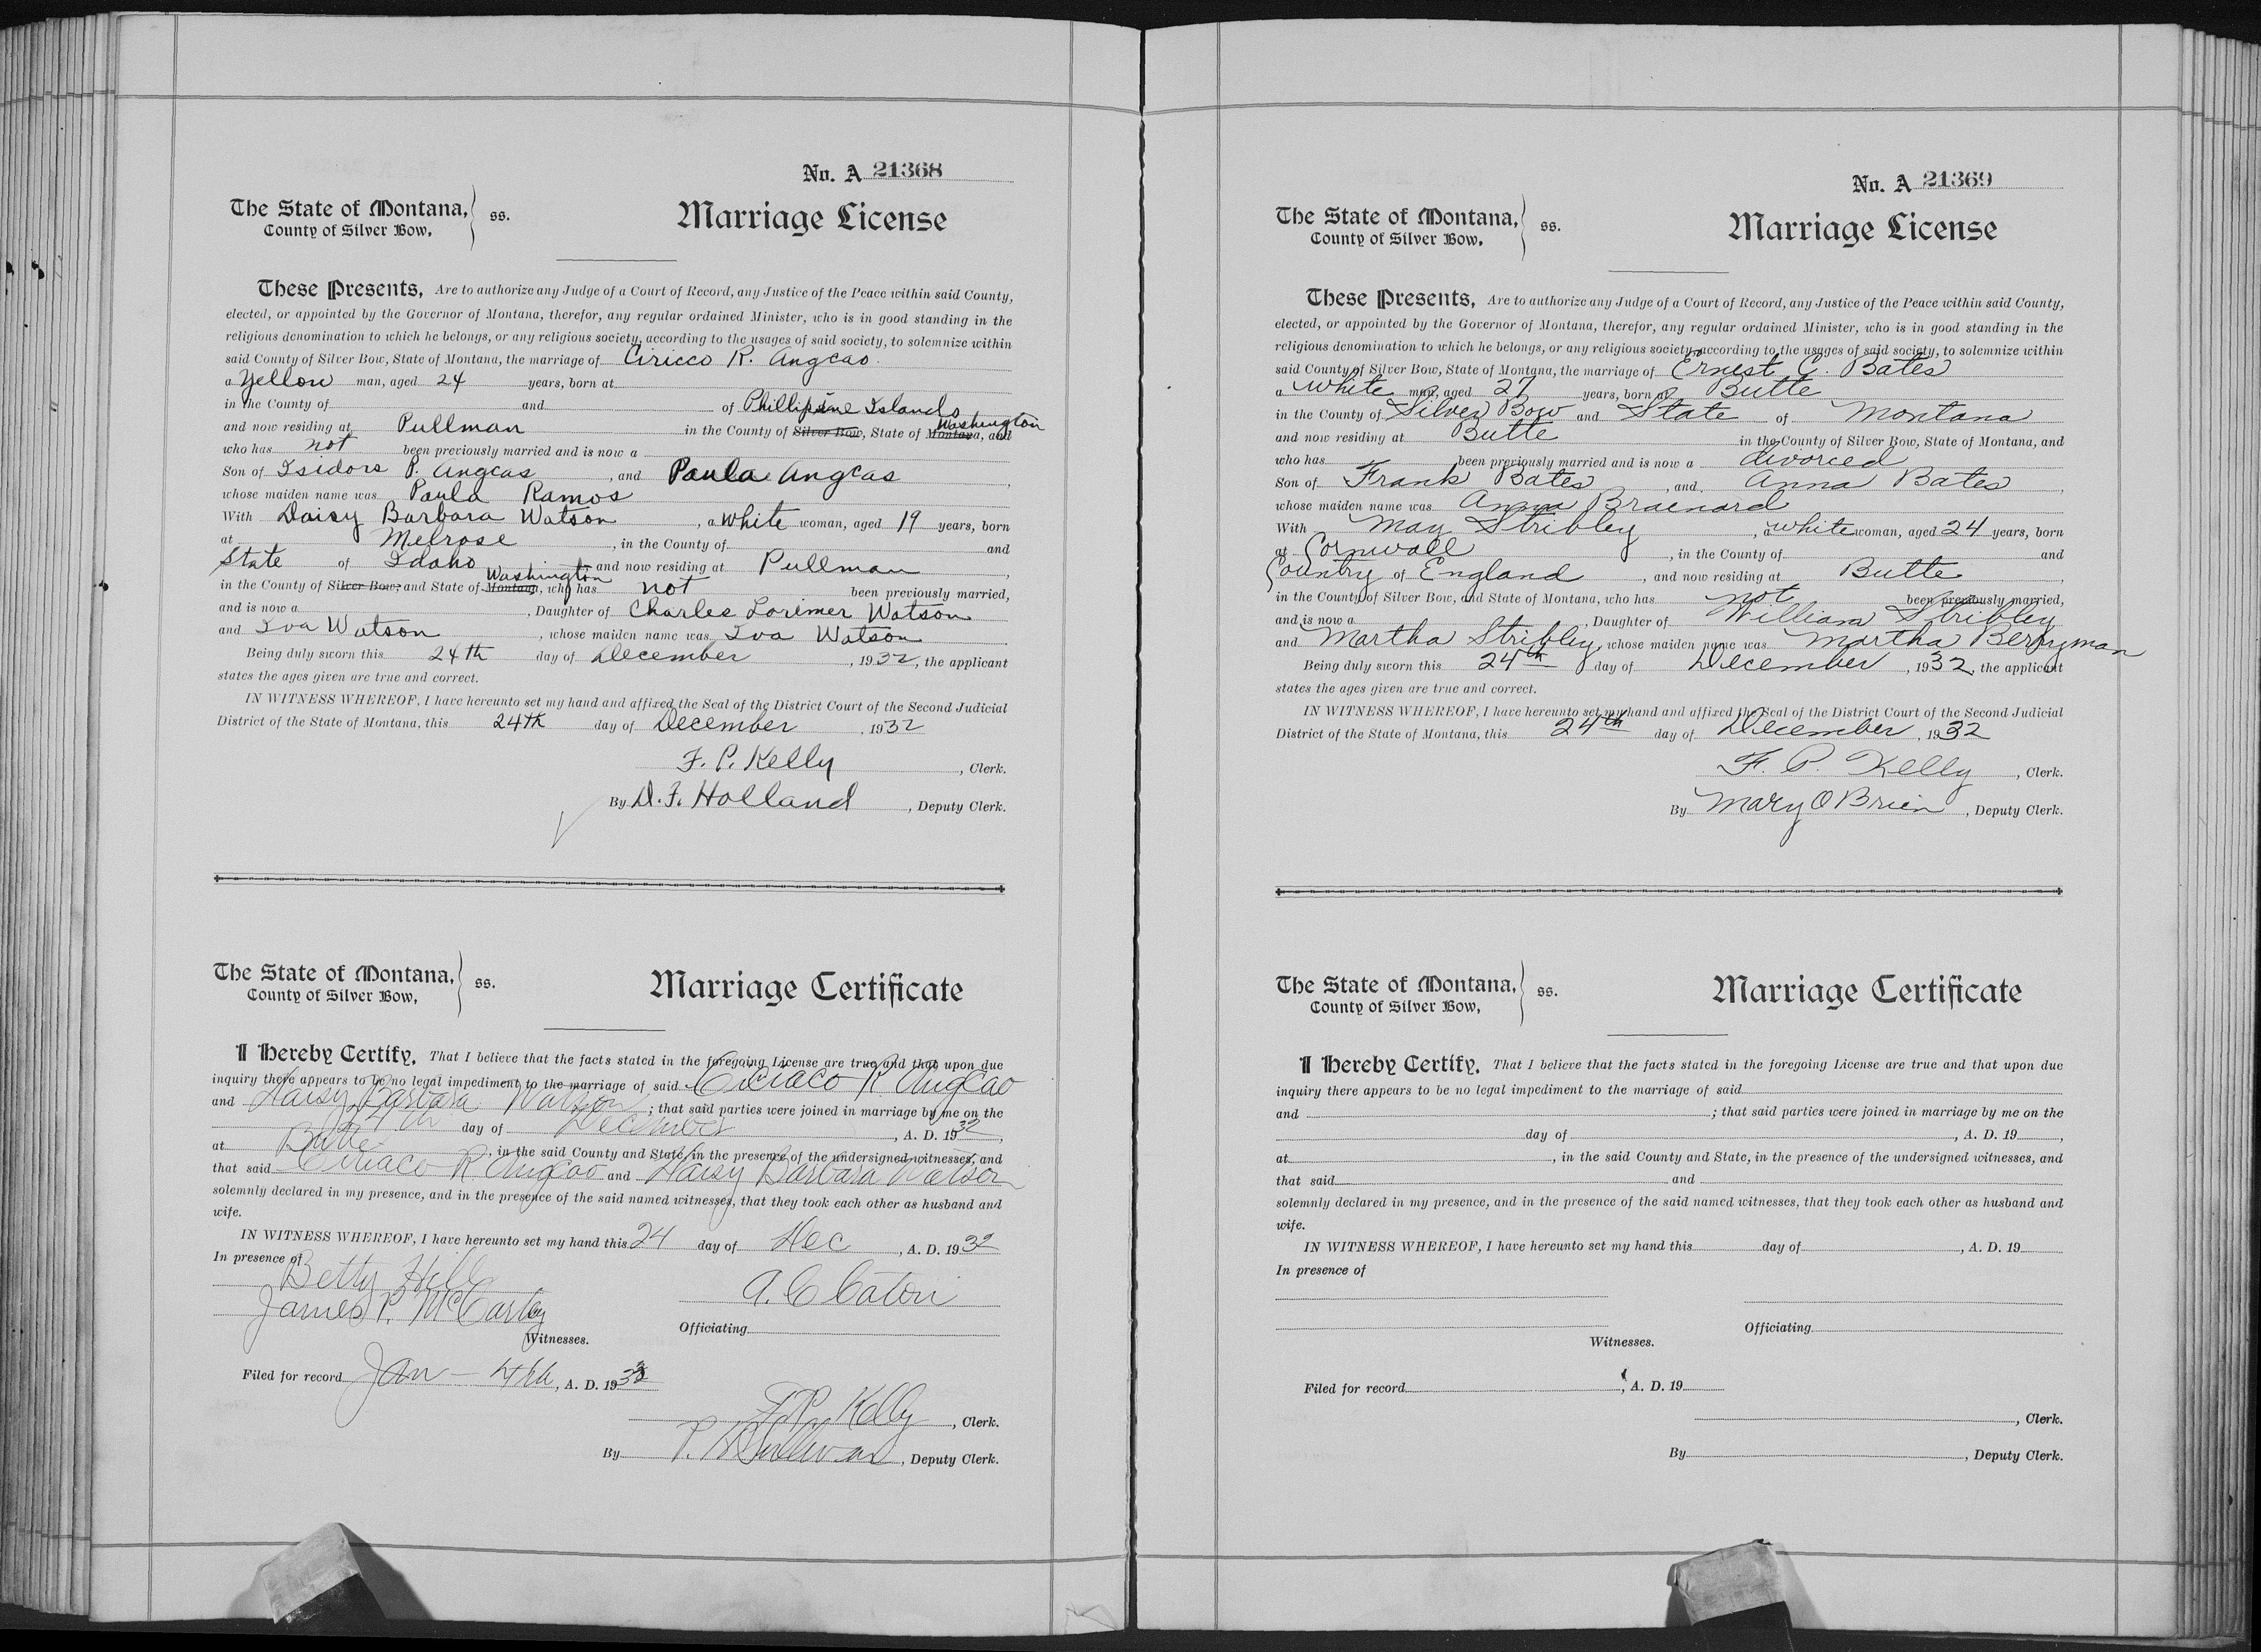 No. A 21368
The State of Montana, County of Silver Bow, ss. Marriage License
These Presents, Are to authorize any Judge of a Court of Record, any Justice of the Peace within said County,
elected, or appointed by the Governor of Montana, therefor, any regular ordained Minister, who is in good standing in the
religious denomination to which he belongs, or any religious society, according to the usages of said society, to solemnize within
said County of Silver Bow, State of Montana, the marriage of Ciricco R. Angcao
a Yellow man, aged 24 years, born at
in the County of and of Phillipine Islands
and now residing at Pullman in the County of Silver Bow, State of Montana, Washington and
who has not been previously married and is now a
Son of Isidors P. Angcas, and Paula Angcas,
whose maiden name was Paula Ramos
With Daisy Barbara Watson, a White woman, aged 19 years, born
at Melrose, in the County of and
State of Idaho, and now residing at Pullman,
in the County of Silver Bow, and State of Montana, Washington who has not been previously married,
and is now a , Daughter of Charles Lorimer Watson
and Iva Watson, whose maiden name was Iva Watson
Being duly sworn this 24th day of December, 1932, the applicant
states the ages given are true and correct.
IN WITNESS WHEREOF, I have hereunto set my hand and affixed the Seal of the District Court of the Second Judicial
District of the State of Montana, this 24th day of December, 1932
F. P. Kelly, Clerk.
By D. F. Holland, Deputy Clerk.
The State of Montana, County of Silver Bow, ss. Marriage Certificate
I Hereby Certify, That I believe that the facts stated in the foregoing License are true and that upon due
inquiry there appears to be no legal impediment to the marriage of said Ciriaco R Angcao
and Daisy Barbara Watson; that said parties were joined in marriage by me on the
24th day of December, A. D. 1932,
at Butte, in the said County and State, in the presence of the undersigned witnesses, and
that said Ciriaco R Angcao and Daisy Barbara Watson
solemnly declared in my presence, and in the presence of the said named witnesses, that they took each other as husband and
wife.
IN WITNESS WHEREOF, I have hereunto set my hand this 24 day of Dec, A. D. 1932
In presence of
Betty Hill
James P. McCarthy
A. C Caton
Witnesses.
Officiating
Filed for record Jan - 4th, A. D. 1933
F. P. Kelly, Clerk.
By P. H Sullivan, Deputy Clerk.
No. A 21369
The State of Montana, County of Silver Bow, ss. Marriage License
These Presents, Are to authorize any Judge of a Court of Record, any Justice of the Peace within said County,
elected, or appointed by the Governor of Montana, therefor, any regular ordained Minister, who is in good standing in the
religious denomination to which he belongs, or any religious society, according to the usages of said society, to solemnize within
said County of Silver Bow, State of Montana, the marriage of Ernest C. Bates
a White man, aged 27 years, born at Butte
in the County of Silver Bow and State of Montana
and now residing at Butte in the County of Silver Bow, State of Montana, and
who has been previously married and is now a divorced
Son of Frank Bates, and Anna Bates,
whose maiden name was Anna Brainard
With May Stribley, a White woman, aged 24 years, born
at Cornwall, in the County of and
Country of England, and now residing at Butte,
in the County of Silver Bow, and State of Montana, who has not been previously married,
and is now a , Daughter of William Stribley
and Martha Stribley, whose maiden name was Martha Berryman
Being duly sworn this 24th day of December, 1932, the applicant
states the ages given are true and correct.
IN WITNESS WHEREOF, I have hereunto set my hand and affixed the Seal of the District Court of the Second Judicial
District of the State of Montana, this 24th day of December, 1932
F. P. Kelly, Clerk.
By Mary O Brien, Deputy Clerk.
The State of Montana, County of Silver Bow, ss. Marriage Certificate
I Hereby Certify, That I believe that the facts stated in the foregoing License are true and that upon due
inquiry there appears to be no legal impediment to the marriage of said
and ; that said parties were joined in marriage by me on the
day of , A. D. 19 ,
at , in the said County and State, in the presence of the undersigned witnesses, and
that said and
solemnly declared in my presence, and in the presence of the said named witnesses, that they took each other as husband and
wife.
IN WITNESS WHEREOF, I have hereunto set my hand this day of , A. D. 19
In presence of
Officiating
Witnesses.
Filed for record , A. D. 19
, Clerk.
By , Deputy Clerk.